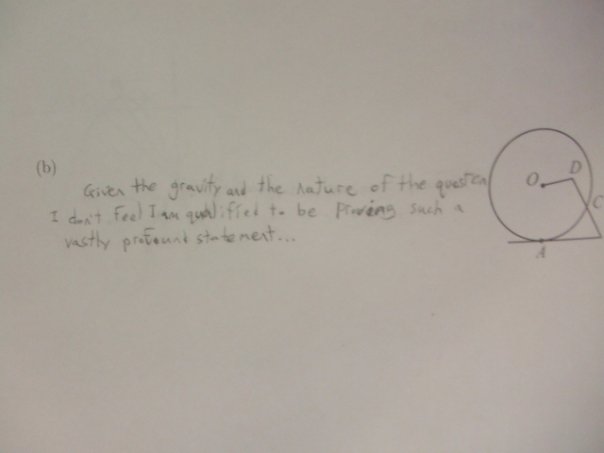 (b)
Given the gravity and the nature of the question
I don't feel I am qualified to be proving such a
vastly profound statement...
O
D
C
A